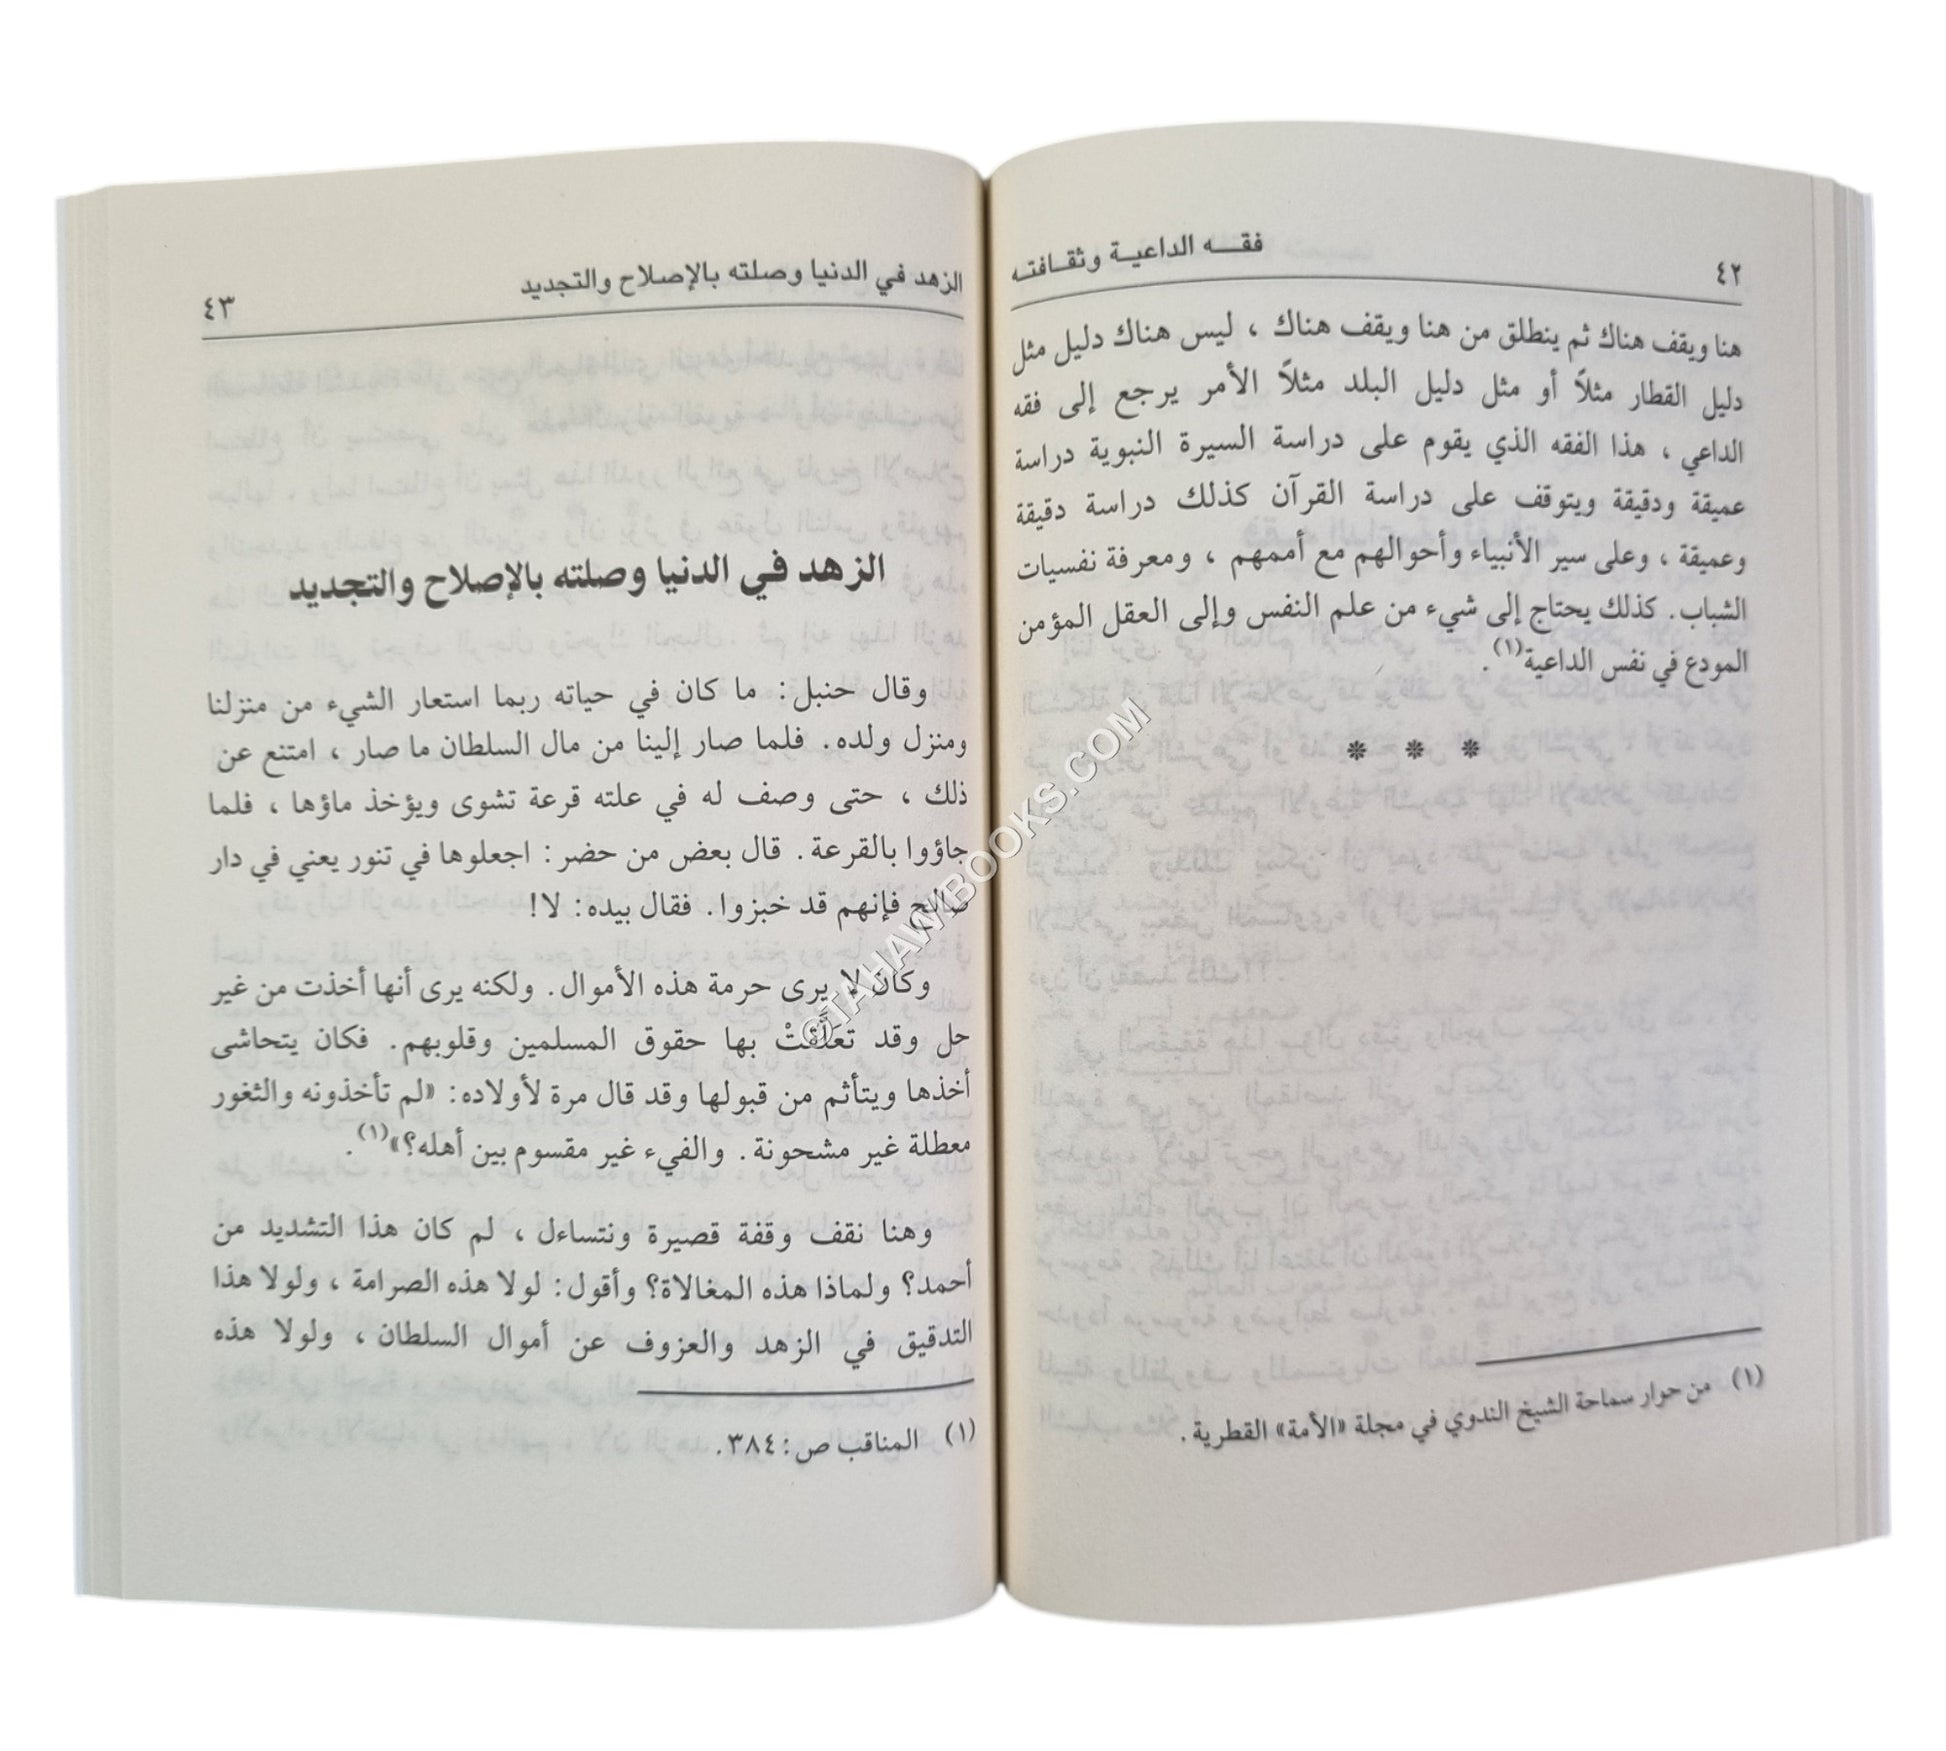 ٤٢
فقـــه الداعيـة وثقـافتـه
هنا ويقف هناك ثم ينطلق من هنا ويقف هناك ، ليس هناك دليل مثل
دليل القطار مثلاً أو مثل دليل البلد مثلاً الأمر يرجع إلى فقه
الداعي ، هذا الفقه الذي يقوم على دراسة السيرة النبوية دراسة
عميقة ودقيقة ويتوقف على دراسة القرآن كذلك دراسة دقيقة
وعميقة ، وعلى سير الأنبياء وأحوالهم مع أممهم ، ومعرفة نفسيات
الشباب. كذلك يحتاج إلى شيء من علم النفس وإلى العقل المؤمن
المودع في نفس الداعية(١).
* * *
(١) من حوار سماحة الشيخ الندوي في مجلة «الأمة» القطرية .
الزهد في الدنيا وصلته بالإصلاح والتجديد
٤٣
الزهد في الدنيا وصلته بالإصلاح والتجديد
وقال حنبل: ما كان في حياته ربما استعار الشيء من منزلنا
ومنزل ولده. فلما صار إلينا من مال السلطان ما صار ، امتنع عن
ذلك ، حتى وصف له في علته قرعة تشوى ويؤخذ ماؤها ، فلما
جاؤوا بالقرعة. قال بعض من حضر: اجعلوها في تنور يعني في دار
صالح فإنهم قد خبزوا. فقال بيده: لا!
وكان لا يرى حرمة هذه الأموال. ولكنه يرى أنها أخذت من غير
حل وقد تعَلَّقتْ بها حقوق المسلمين وقلوبهم. فكان يتحاشى
أخذها ويتأثم من قبولها وقد قال مرة لأولاده: «لم تأخذونه والثغور
معطلة غير مشحونة. والفيء غير مقسوم بين أهله؟»(١).
وهنا نقف وقفة قصيرة ونتساءل ، لم كان هذا التشديد من
أحمد؟ ولماذا هذه المغالاة؟ وأقول: لولا هذه الصرامة ، ولولا هذا
التدقيق في الزهد والعزوف عن أموال السلطان ، ولولا هذه
(١) المناقب ص: ٣٨٤.
©TAHAWIBOOKS.COM